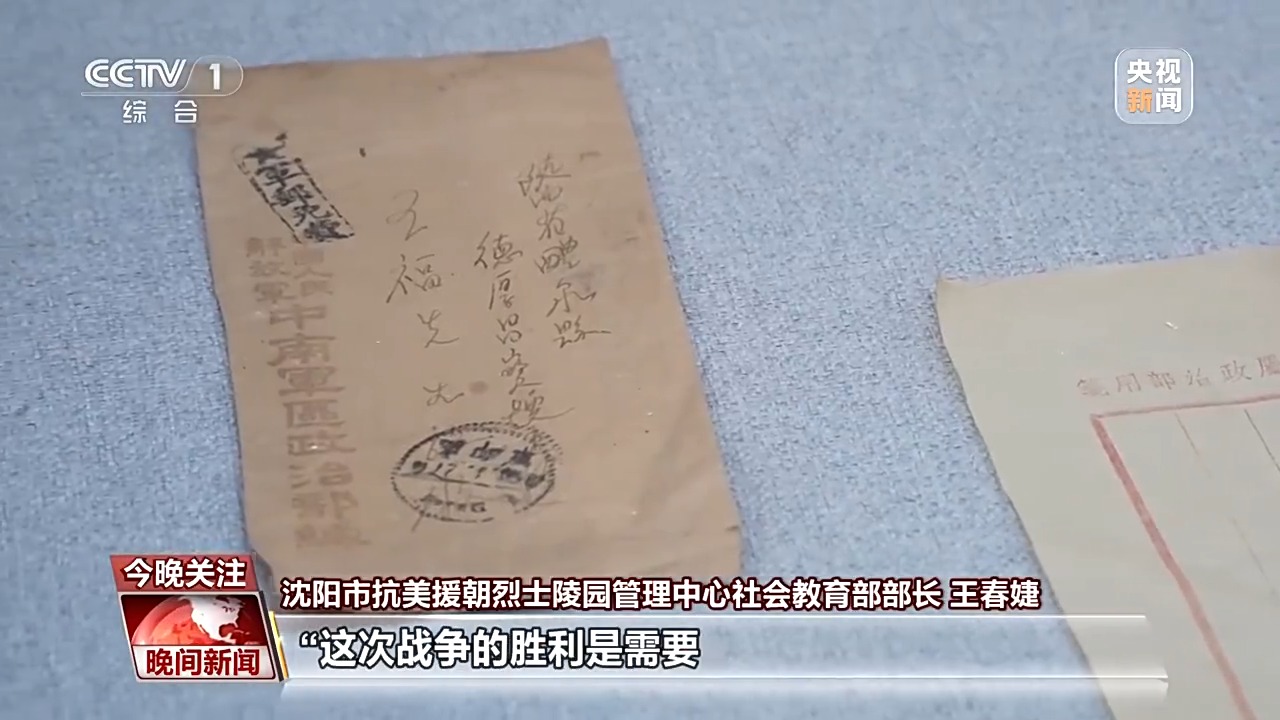 CCTV 1
综合
央视
新闻
軍郵免費
醴泉縣
德厚昌
王福先
中國人民
解放軍
中南軍區政治部緘
政治部用箋
今晚关注
晚间新闻
沈阳市抗美援朝烈士陵园管理中心社会教育部部长 王春婕
“这次战争的胜利是需要